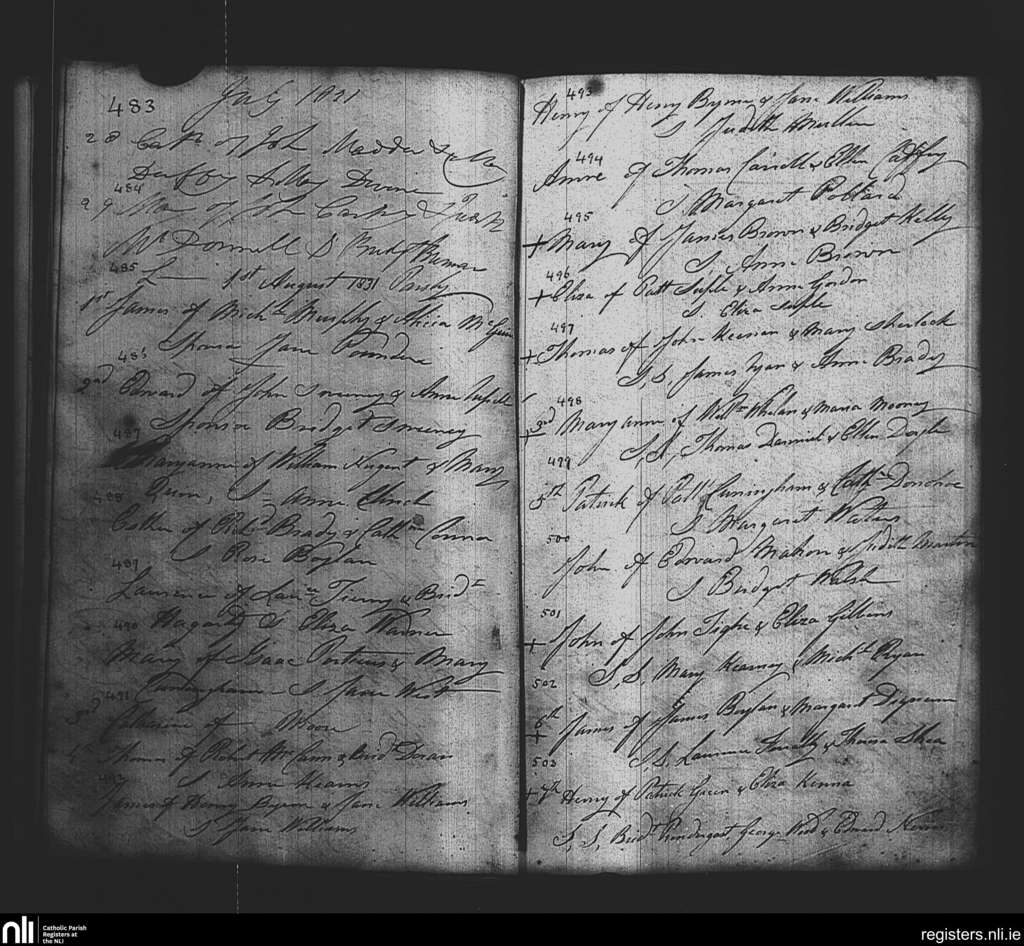 483 July 1831
28 Cath. of Joh Madden & Mary
Duffy S Mary Devine
484
29 Mary of John &
McDonnell S Bridget
485 1st August 1831
1st James of Michl. Murphy & Alicia McGuire
Sponsor Jane
486
2nd Edward of John Sweeney & Anne
Sponsor Bridget Sweeney
487
Maryanne of William Nugent & Mary
488 Quin, S Anne
Cathn of Richd Brady & Cathne Connor
S Rose Boylan
489
Laurence of Laur. Tierney & Bridt
490 Hagarty S Eliza Warner
Mary of Isaac & Mary
491 Cunningham S Jane West
3d Catherine of Moore
4th Thomas of Robert McCann & Brid. Doran
492 S Anne Kearns
James of Henry Byrne & Jane Williams
S Jane Williams
493
Henry of Henry Byrne & Jane Williams
S Judith
494
Anne of Thomas Carroll & Ellen Caffry
S Margaret Pollard
495
+ Mary of James Brown & Bridget Kelly
S Anne Brown
496
+ Eliza of Patt Suple & Anne Gordon
S. Eliza Suple
497
+ Thomas of John & Mary Sherlock
S,S, James Ryan & Anne Brady
498
3d Mary anne of Willm Whelan & Maria Mooney
+ S,S, Thomas & Ellen Doyle
499
5th Patrick of Patt Cuningham & Cath Donohoe
S Margaret Waters
500
John of Edward Mahon & Judith
S Bridget Walsh
501
+ John of John Tighe & Eliza Gibbins
S,S, Mary Kearney & Michl. Ryan
502
6th James of James Boylan & Margaret Digenan
+
503 S S. Laurence & Theresa Shea
+ 7th Henry of Patrick Green & Eliza Kenna
S, S, Bridt Prendergast, George Wood & Edward
nli Catholic Parish
Registers at
the NLI
registers.nli.ie